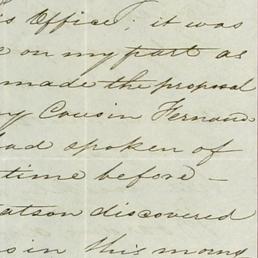 is Office; it was
e on my part as
made the proposal
y Cousin Fernan
had spoken of
time before –
atson discovered
s in this morng